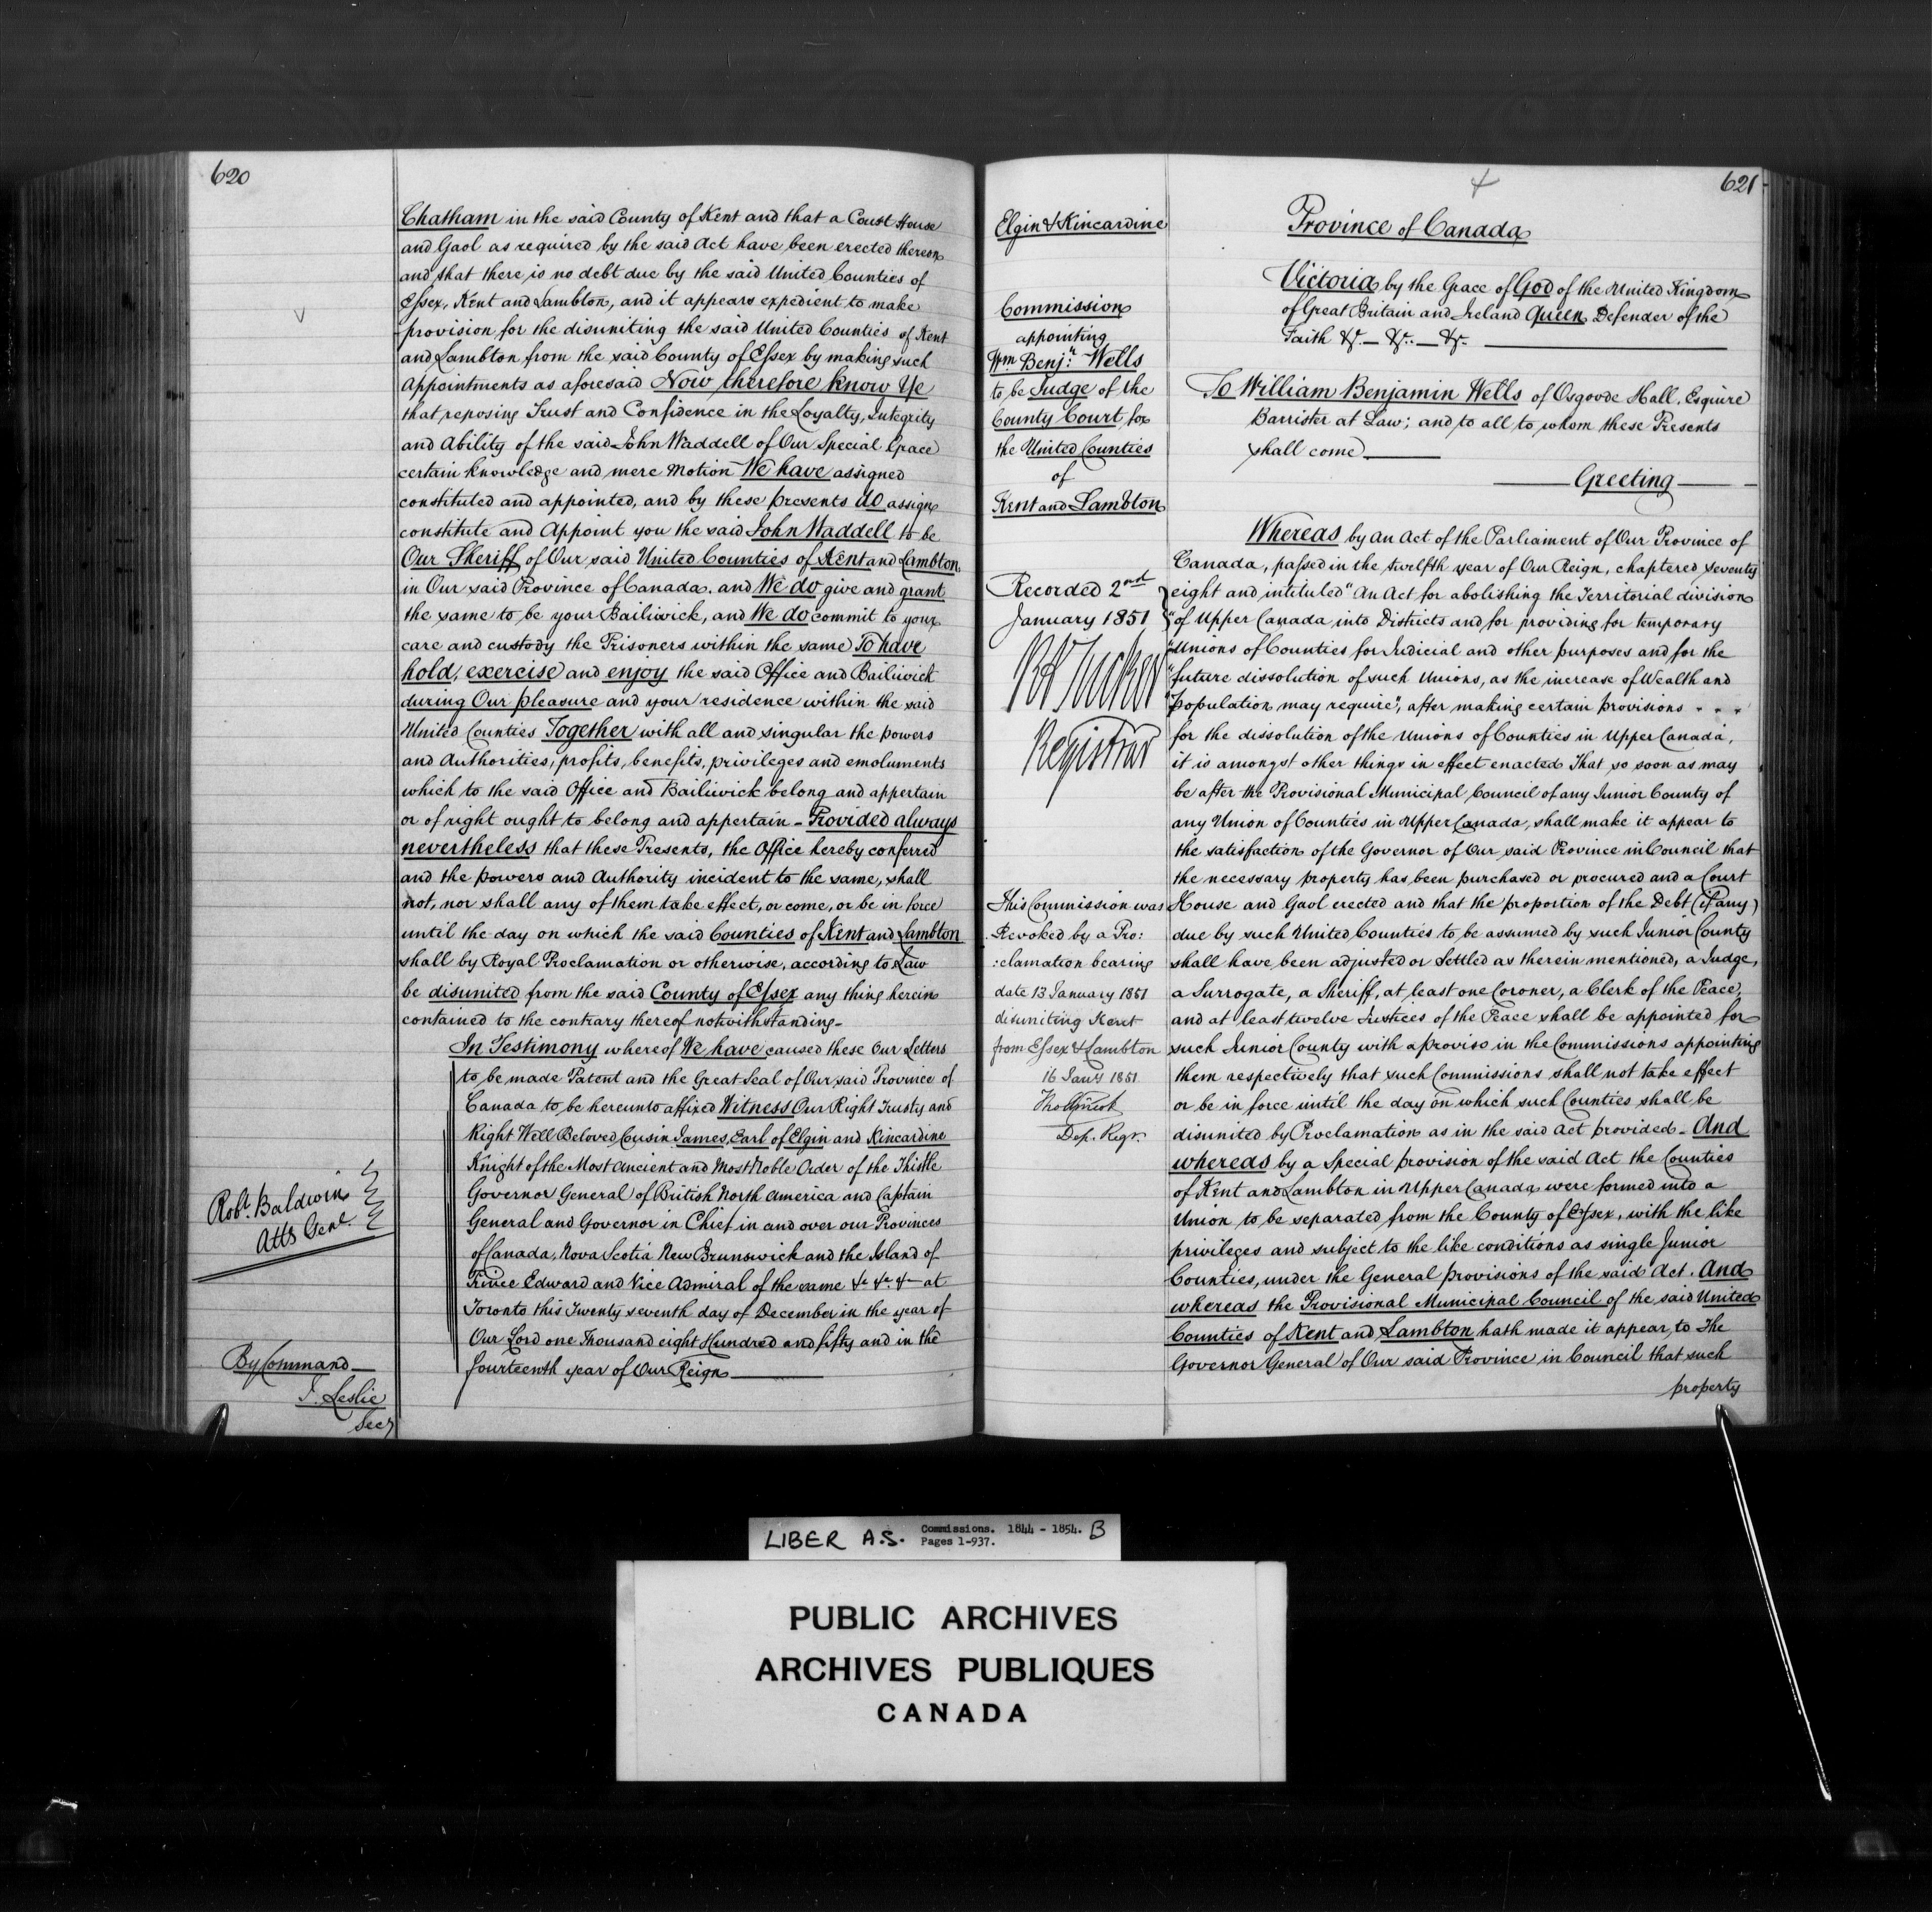 620
Chatham in the said County of Kent and that a Court House
and Gaol as required by the said Act have been erected thereon
and that there is no debt due by the said United Counties of
Essex, Kent and Lambton, and it appears expedient to make
provision for the disuniting the said United Counties of Kent
and Lambton from the said County of Essex by making such
Appointments as aforesaid Now therefore Know Ye
that reposing Trust and Confidence in the Loyalty, Integrity
and Ability of the said John Waddell of Our Special Grace
certain Knowledge and mere Motion We have assigned
constituted and appointed, and by these presents do assign
constitute and Appoint you the said John Waddell to be
Our Sheriff of Our said United Counties of Kent and Lambton
in Our said Province of Canada. and We do give and grant
the same to be your Bailiwick, and We do commit to your
care and custody the Prisoners within the same To have
hold, exercise and enjoy the said Office and Bailiwick
during Our pleasure and your residence within the said
United Counties Together with all and singular the powers
and Authorities, profits, benefits, privileges and emoluments
which to the said Office and Bailiwick belong and appertain
or of right ought to belong and appertain - Provided always
nevertheless that these Presents, the Office hereby conferred
and the powers and Authority incident to the same, shall
not, nor shall any of them take effect, or come, or be in force
until the day on which the said Counties of Kent and Lambton
shall by Royal Proclamation or otherwise, according to Law
be disunited from the said County of Essex any thing herein
contained to the contrary thereof notwithstanding-
In Testimony whereof We have caused these Our Letters
to be made Patent and the Great Seal of Our said Province of
Canada to be hereunto affixed Witness Our Right Trusty and
Right Well Beloved Cousin James, Earl of Elgin and Kincardine
Knight of the Most Ancient and Most Noble Order of the Thistle
Governor General of British North America and Captain
General and Governor in Chief in and over our Provinces
of Canada, Nova Scotia New Brunswick and the Island of
Prince Edward and Vice Admiral of the same &c &c &c at
Toronto this Twenty seventh day of December in the year of
Our Lord one Thousand eight Hundred and fifty and in the
fourteenth year of Our Reign
Robt. Baldwin
Atty Genl.
By Command
J. Leslie
Secy
621
Elgin & Kincardine
Commission
appointing
Wm Benjn. Wells
to be Judge of the
County Court for
the United Counties
of
Kent and Lambton
Recorded 2nd
January 1851
RA Tucker
Registrar
This Commission was
Revoked by a Pro:
:clamation bearing
date 13 January 1851
disuniting Kent
from Essex & Lambton
16 Jany 1851
Dep. Regr.
Province of Canada
Victoria by the Grace of God of the United Kingdom
of Great Britain and Ireland Queen Defender of the
Faith &c. &c. &c.
To William Benjamin Wells of Osgoode Hall, Esquire
Barrister at Law; and to all to whom these Presents
shall come
Greeting
Whereas by an Act of the Parliament of Our Province of
Canada, passed in the twelfth year of Our Reign, chaptered seventy
eight and intituled "An Act for abolishing the Territorial division
"of Upper Canada into Districts and for providing for temporary
"Unions of Counties for Judicial and other purposes and for the
"future dissolution of such Unions, as the increase of Wealth and
"Population may require", after making certain provisions
for the dissolution of the Unions of Counties in Upper Canada,
it is amongst other things in effect enacted That so soon as may
be after the Provisional Municipal Council of any Junior County of
any Union of Counties in Upper Canada, shall make it appear to
the satisfaction of the Governor of Our said Province in Council that
the necessary property has been purchased or procured and a Court
House and Gaol erected and that the proportion of the Debt (if any)
due by such United Counties to be assumed by such Junior County
shall have been adjusted or Settled as therein mentioned, a Judge,
a Surrogate, a Sheriff, at least one Coroner, a Clerk of the Peace,
and at least twelve Justices of the Peace shall be appointed for
such Junior County with a proviso in the Commissions appointing
them respectively that such Commissions shall not take effect
or be in force until the day on which such Counties shall be
disunited by Proclamation as in the said Act provided - And
whereas by a Special provision of the said Act the Counties
of Kent and Lambton in Upper Canada were formed into a
Union to be separated from the County of Essex, with the like
privileges and subject to the like conditions as single Junior
Counties, under the General provisions of the said Act. And
whereas the Provisional Municipal Council of the said United
Counties of Kent and Lambton hath made it appear, to The
Governor General of Our said Province in Council that such
property
LIBER A.S. Commissions. 1844 - 1854. B
Pages 1-937.
PUBLIC ARCHIVES
ARCHIVES PUBLIQUES
CANADA